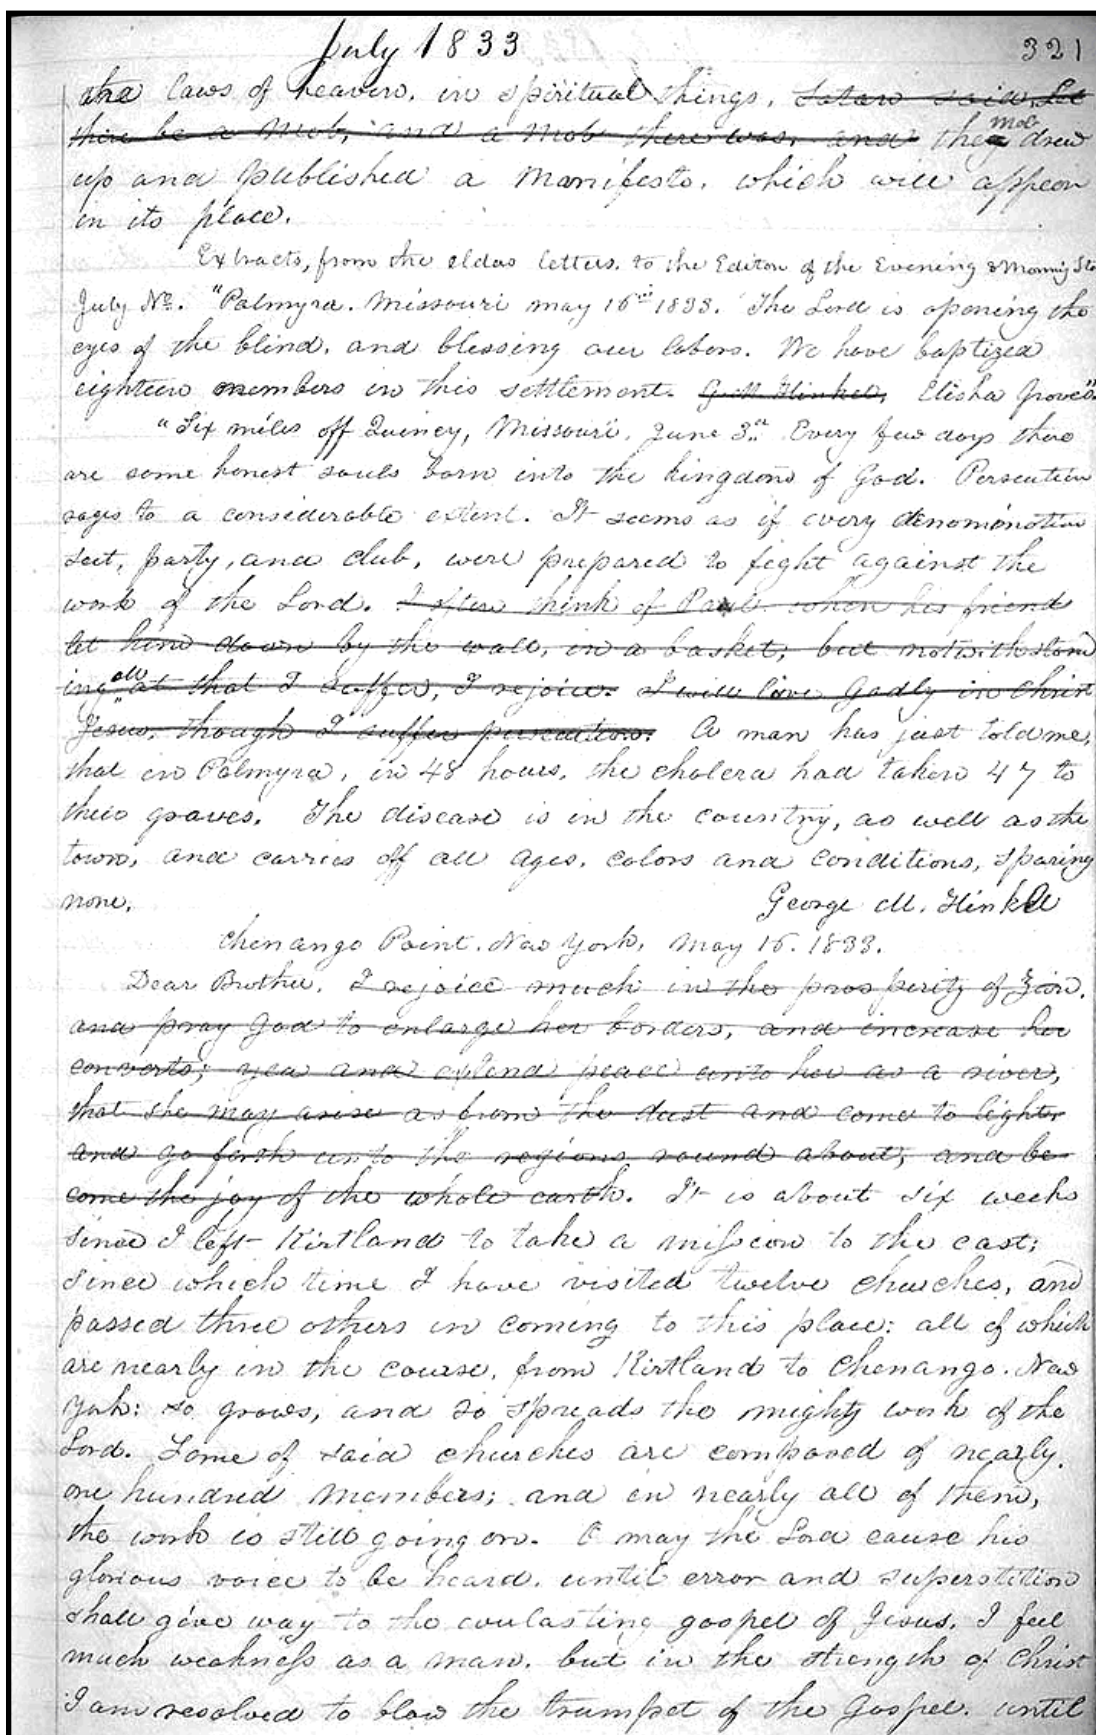 July 1833 321
the laws of heaven, in spiritual things, Satan said, Let
there be a mob, and a mob there was, and they mob drew
up and published a Manifesto, which will appear
in its place.
Extracts, from the elders letters, to the Editor of the Evening & Morning Sta
July No. "Palmyra. Missouri may 16th 1833. The Lord is opening the
eyes of the blind, and blessing our labors. We have baptized
eighteen members in this settlement. G. M Hinkel, Elisha Groves"
"Six miles off Quincy, Missouri, June 3d. Every few days there
are some honest souls born into the kingdom of God. Persecution
rages to a considerable extent. It seems as if every denomination
sect, party, and club, were prepared to fight against the
work of the Lord. I often think of Paul when his friend
let him down by the wall, in a basket; but notwithstand
ing all at that I suffer, I rejoice. I will live Godly in Christ
Jesus, though I suffer persecution. A man has just told me,
that in Palmyra, in 48 hours, the cholera had taken 47 to
their graves. The disease is in the country, as well as the
town, and carries off all ages, colors and conditions, sparing
none. George M. Hinkle
Chenango Point. New York, May 16. 1833.
Dear Brother, I rejoice much in the prosperity of Zion,
and pray God to enlarge her borders, and increase her
converts; yea and extend peace unto her as a river,
that she may arise as from the dust and come to light
and go forth unto the regions round about, and be-
come the joy of the whole earth. It is about six weeks
since I left Kirtland to take a mission to the east;
since which time I have visited twelve churches, and
passed three others in coming to this place: all of which
are nearly in the course, from Kirtland to Chenango. New
York: so grows, and so spreads the mighty work of the
Lord. Some of said churches are composed of nearly
one hundred members; and in nearly all of them,
the work is still going on. O may the Lord cause his
glorious voice to be heard, until error and superstition
shall give way to the everlasting gospel of Jesus. I feel
much weakness as a man, but in the strength of Christ
I am resolved to blow the trumpet of the Gospel. until